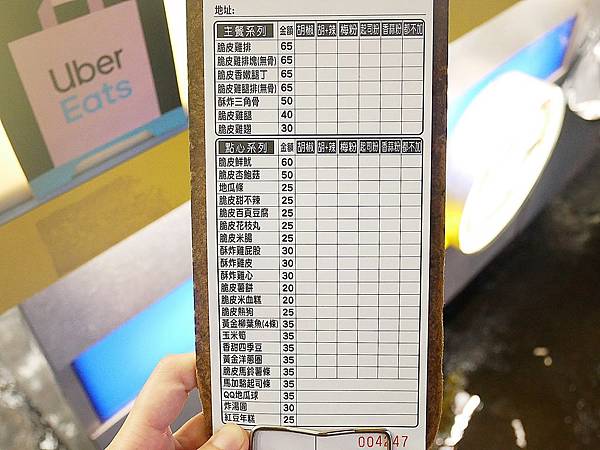 地址:
Uber
Eats
主餐系列 金額 胡椒 胡+辣 梅粉 起司粉 香蒜粉 都不加
脆皮雞排 65
脆皮雞排塊(無骨) 65
脆皮香嫩腿丁 65
脆皮雞腿排(無骨) 65
酥炸三角骨 50
脆皮雞腿 40
脆皮雞翅 30
點心系列 金額 胡椒 胡+辣 梅粉 起司粉 香蒜粉 都不加
脆皮鮮魷 60
脆皮杏鮑菇 50
地瓜條 25
脆皮甜不辣 25
脆皮百頁豆腐 25
脆皮花枝丸 25
脆皮米腸 25
酥炸雞屁股 30
酥炸雞皮 30
酥炸雞心 30
脆皮薯餅 20
脆皮米血糕 20
脆皮熱狗 25
黃金柳葉魚(4條) 35
玉米筍 35
香甜四季豆 35
黃金洋蔥圈 35
脆皮馬鈴薯條 35
馬加駱起司條 35
QQ地瓜球 35
炸湯圓 30
紅豆年糕 25
004247